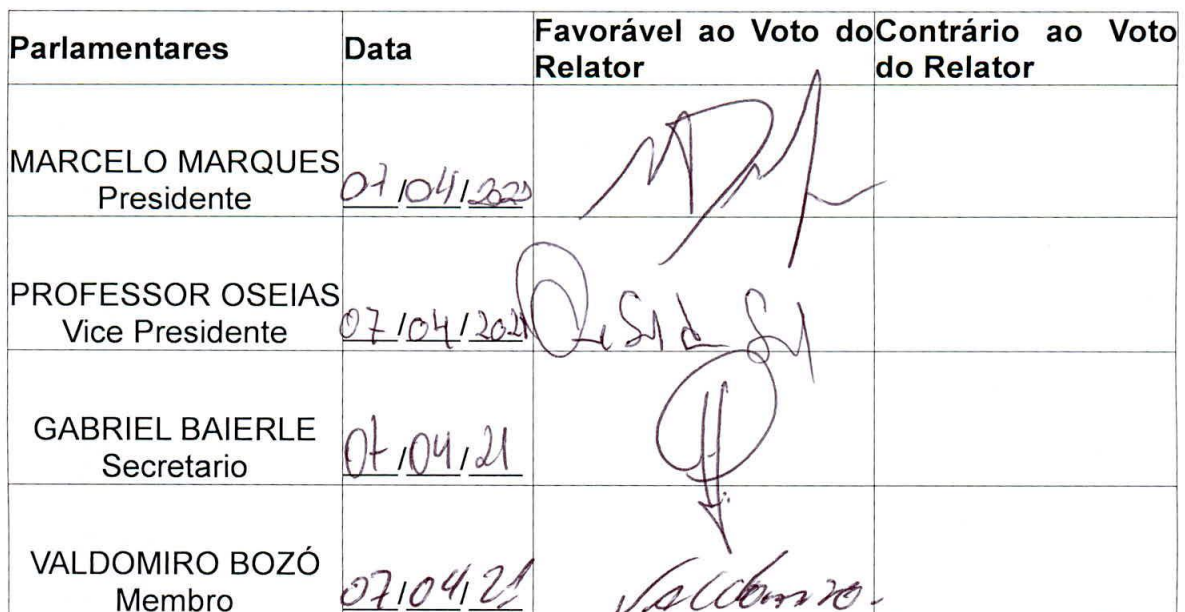 Parlamentares Data Favorável ao Voto do Relator Contrário ao Voto do Relator
MARCELO MARQUES
Presidente 07/04/2021
PROFESSOR OSEIAS
Vice Presidente 07/04/2021
GABRIEL BAIERLE
Secretario 07/04/21
VALDOMIRO BOZÓ
Membro 07/04/21 Valdomiro